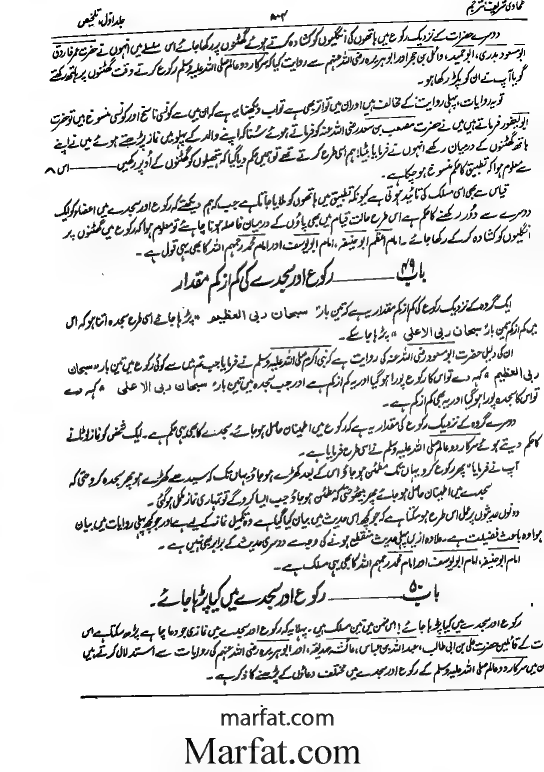 طحاوی شریف مترجم ۸۰۲ جلد اول، تلخیص
دوسرے حضرات کے نزدیک رکوع میں ہاتھوں کی انگلیوں کو کشادہ کرتے ہوئے گھٹنوں پر رکھا جائے اس سلسلے میں انہوں نے حضرت عمر فاروق
ابو مسعود بدری، ابو حمید، وائل بن حجر اور ابوہریرہ رضی اللہ عنہم سے روایت کیا کہ سرکار دو عالم صلی اللہ علیہ وسلم رکوع کرتے وقت گھٹنوں پر ہاتھ رکھتے
گویا آپ نے ان کو پکڑ رکھا ہو۔
تو یہ روایات، پہلی روایت کے مخالف ہیں اور ان میں تواتر بھی ہے تو اب دیکھنا یہ ہے کہ ان میں سے کونسی ناسخ اور کونسی منسوخ ہیں تو حضرت
ابو یعفور فرماتے ہیں میں نے حضرت مصعب بن سعد رضی اللہ عنہ کو فرماتے ہوئے سنا کہ اپنے والد کے پہلو میں نماز پڑھتے ہوئے میں نے اپنے
ہاتھ گھٹنوں کے درمیان رکھے انہوں نے فرمایا بیٹا! ہم اسی طرح کرتے تھے تو ہمیں حکم دیا گیا کہ ہتھیلیوں کو گھٹنوں کے اوپر رکھیں —— اس
سے معلوم ہوا کہ تطبیق کا حکم منسوخ ہو چکا ہے۔
قیاس سے بھی اسی مسلک کی تائید ہوتی ہے کیونکہ تطبیق میں ہاتھوں کو ملایا جاتا ہے جب کہ ہم دیکھتے کہ رکوع اور سجدے میں اعضاء کو ایک
دوسرے سے دور رکھنے کا حکم ہے اسی طرح حالت قیام میں بھی پاؤں کے درمیان فاصلہ ہونا چاہئے تو معلوم ہوا کہ رکوع میں گھٹنوں پر
انگلیوں کو کشادہ کر کے رکھا جائے۔ امام اعظم ابو حنیفہ، امام ابو یوسف اور امام محمد رحمہم اللہ کا بھی یہی قول ہے۔
باب ۴۹ —— رکوع اور سجدے کی کم از کم مقدار
ایک گروہ کے نزدیک رکوع کی کم از کم مقدار یہ ہے کہ تین بار "سبحان ربی العظیم" پڑھا جائے اسی طرح سجدہ اتنا ہو کہ اس
میں کم از کم تین بار "سبحان ربی الاعلی" پڑھا جا سکے۔
ان کی دلیل حضرت ابو مسعود رضی اللہ عنہ کی روایت ہے کہ نبی اکرم صلی اللہ علیہ وسلم نے فرمایا جب تم میں سے کوئی رکوع میں تین بار "سبحان
ربی العظیم" کہہ دے تو اس کا رکوع پورا ہو گیا اور یہ کم از کم ہے اور جب سجدہ میں تین بار "سبحان ربی الا علی" کہہ دے
تو اس کا سجدہ پورا ہو گیا اور یہ بھی کم از کم ہے۔
دوسرے گروہ کے نزدیک رکوع کی مقدار یہ ہے کہ رکوع میں اطمینان حاصل ہو جائے۔ سجدے کا بھی یہی حکم ہے۔ ایک شخص کو نماز لوٹانے
کا حکم دیتے ہوئے سرکار دو عالم صلی اللہ علیہ وسلم نے اسی طرح فرمایا ہے۔
آپ نے فرمایا "پھر رکوع کرو یہاں تک مطمئن ہو جاؤ اس کے بعد کھڑے ہو جاؤ یہاں تک کہ سیدھے کھڑے ہو پھر سجدہ کرو حتی کہ
سجدے میں اطمینان حاصل ہو جائے پھر بیٹھو حتی کہ مطمئن ہو جاؤ جب ایسا کرو گے تو تمہاری نماز مکمل ہو گئی۔
دونوں حدیثوں پر عمل اس طرح ہو سکتا ہے کہ جو کچھ اس حدیث میں بیان کیا گیا ہے وہ تکمیل نماز کے لیے ہے اور جو کچھ پہلی روایات میں بیان
ہوا وہ باعث فضیلت ہے۔ علاوہ ازیں پہلی حدیث منقطع ہونے کی وجہ سے دوسری حدیث کے برابر بھی نہیں ہے۔
امام ابو حنیفہ، امام ابو یوسف اور امام محمد رحمہم اللہ کا بھی یہی مسلک ہے۔
باب ۵۰ —— رکوع اور سجدے میں کیا پڑھا جائے۔
رکوع اور سجدے میں کیا پڑھا جائے؟ اس ضمن میں تین مسلک ہیں۔ پہلا یہ کہ رکوع اور سجدے میں نمازی جو دعا چاہے پڑھ سکتا ہے اس
بات کے قائلین حضرت علی بن ابی طالب، عبداللہ بن عباس، عائشہ صدیقہ، اور ابوہریرہ رضی اللہ عنہم کی روایات سے استدلال کرتے ہیں
ان میں سرکار دو عالم صلی اللہ علیہ وسلم کے رکوع اور سجدے میں مختلف دعاؤں کے پڑھنے کا ذکر ہے۔
marfat.com
Marfat.com